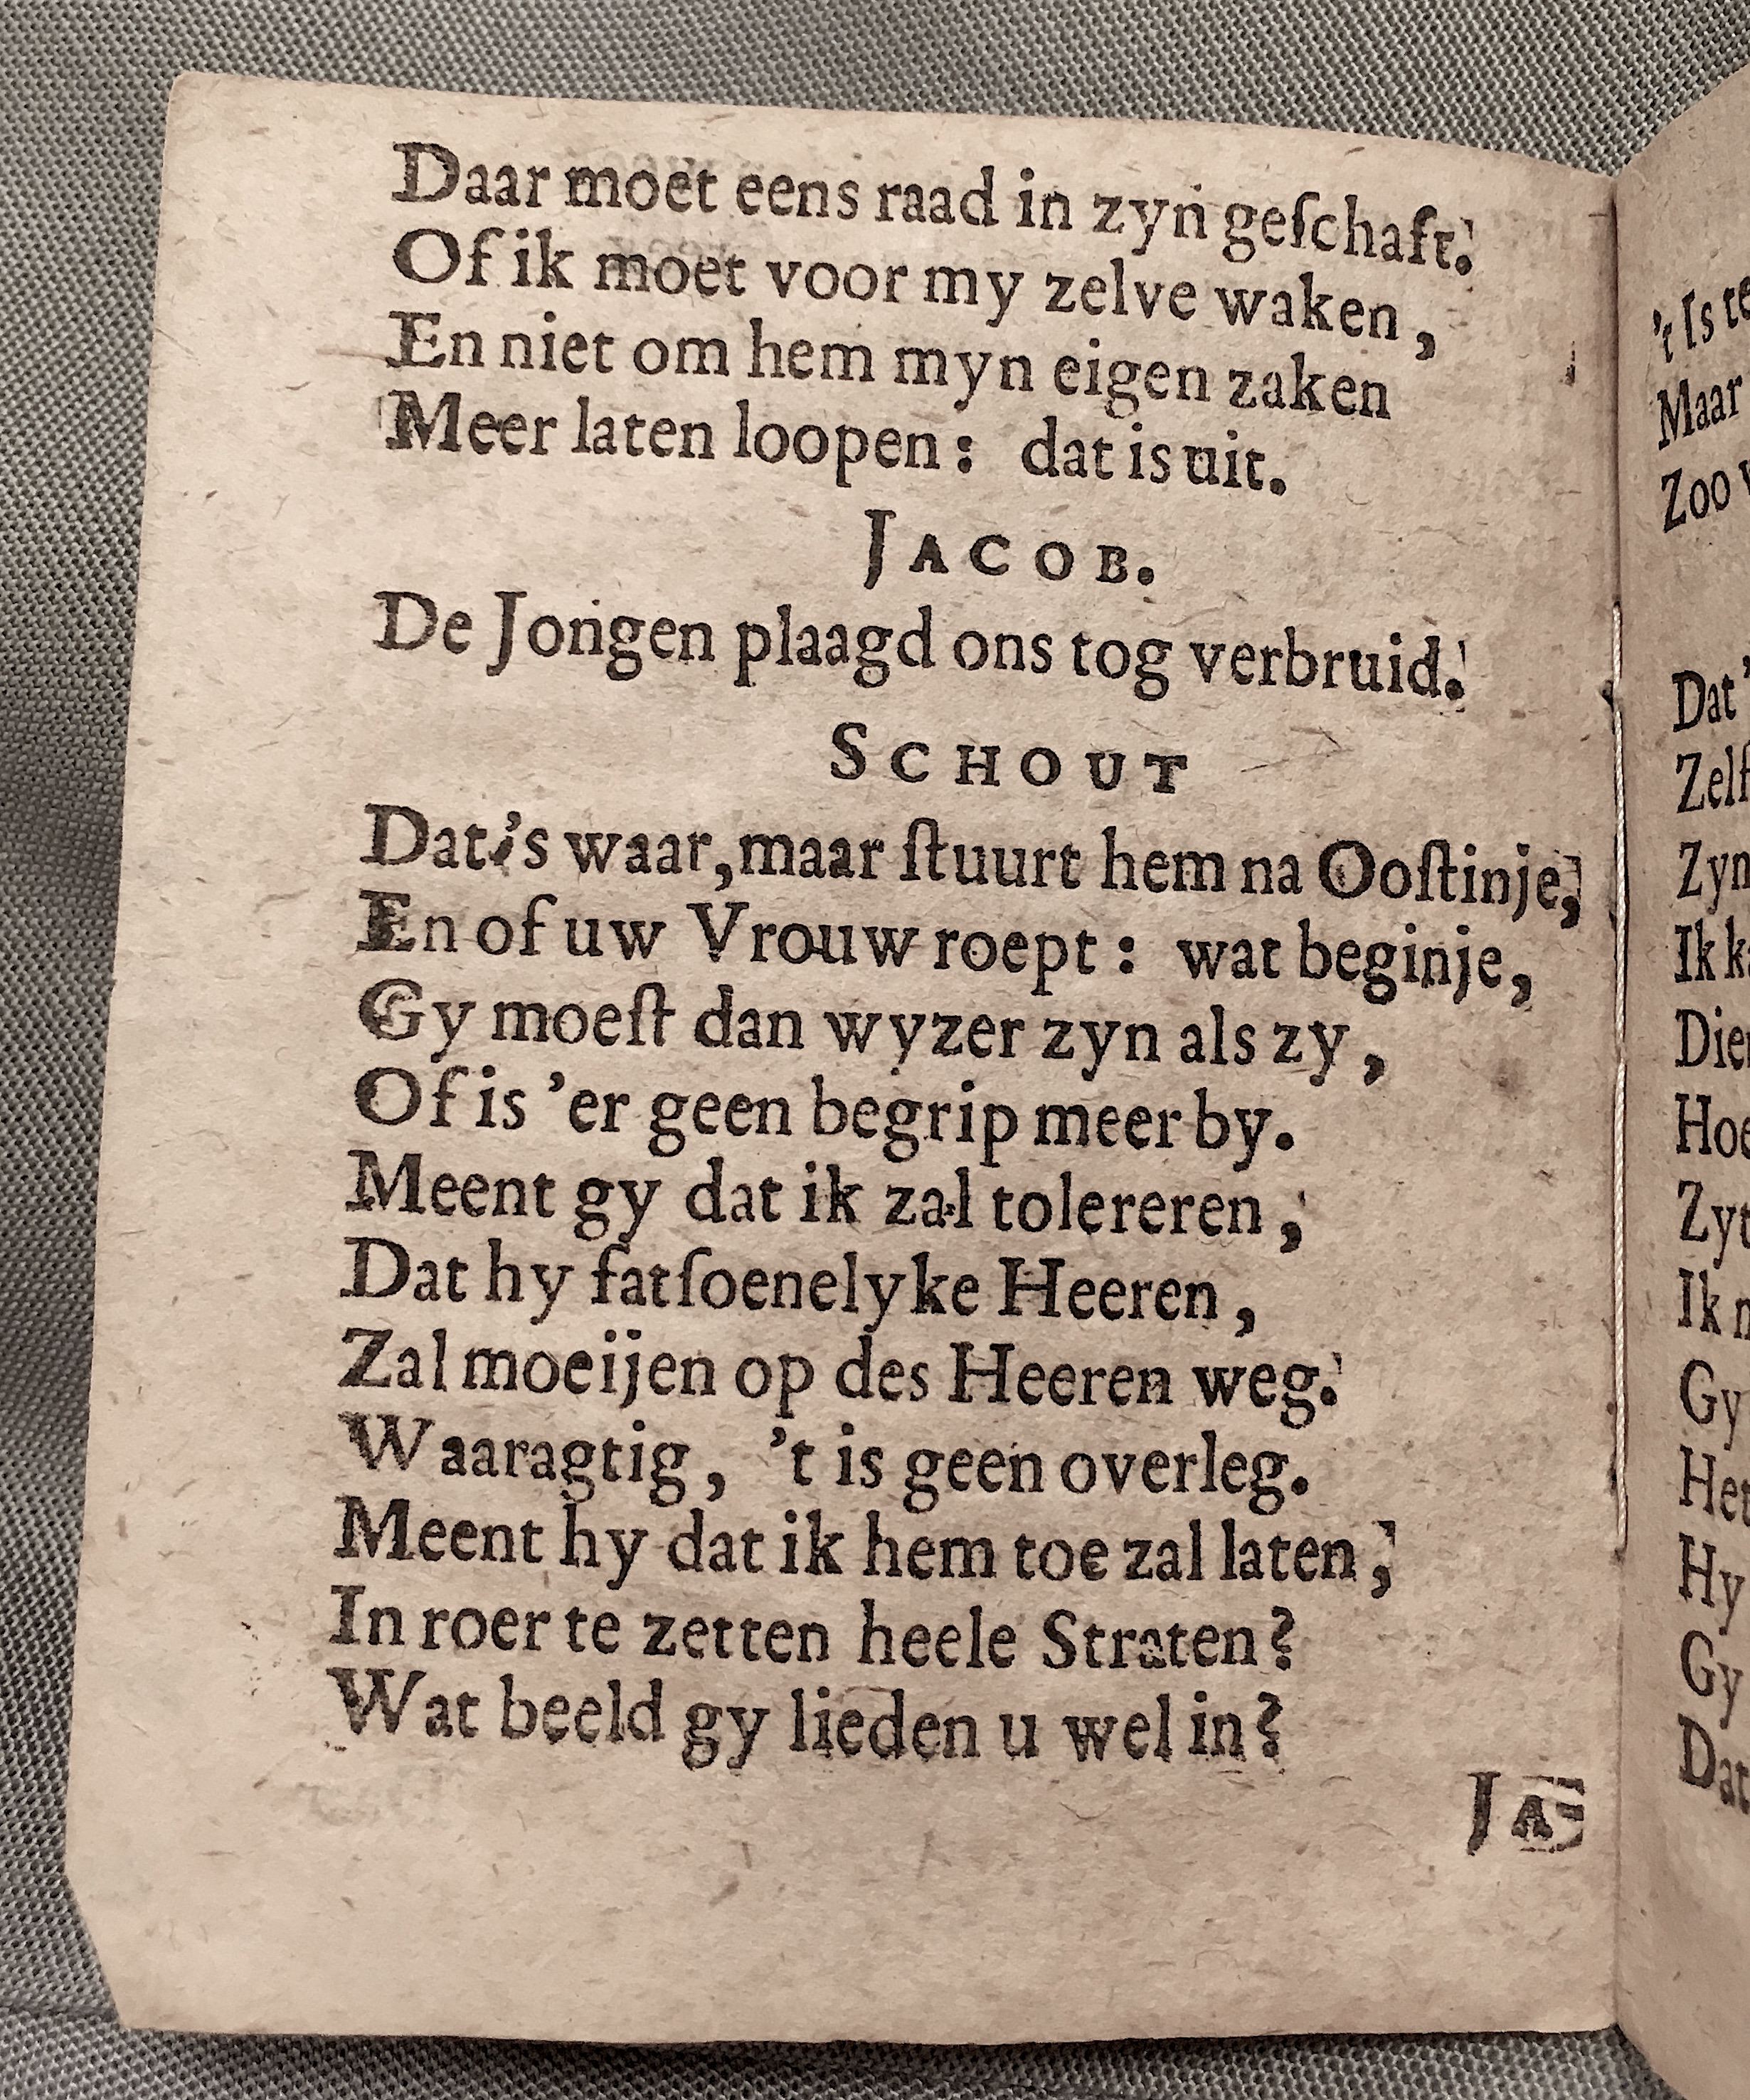 Daar moet eens raad in zyn geſchaft.
Of ik moet voor my zelve waken,
En niet om hem myn eigen zaken
Meer laten loopen: dat is uit.
JACOB.
De Jongen plaagd ons tog verbruid.
SCHOUT
Dat's waar, maar ſtuurt hem na Ooſtinje,
En of uw Vrouw roept: wat beginje,
Gy moeſt dan wyzer zyn als zy,
Of is 'er geen begrip meer by.
Meent gy dat ik zal tolereren,
Dat hy fatſoenelyke Heeren,
Zal moeijen op des Heeren weg.
Waaragtig, 't is geen overleg.
Meent hy dat ik hem toe zal laten,
In roer te zetten heele Straten?
Wat beeld gy lieden u wel in?
JA-
't Is
Maar
Zoo
Dat'
Zyn
Ik
Gy
Hy
Gy
Dat